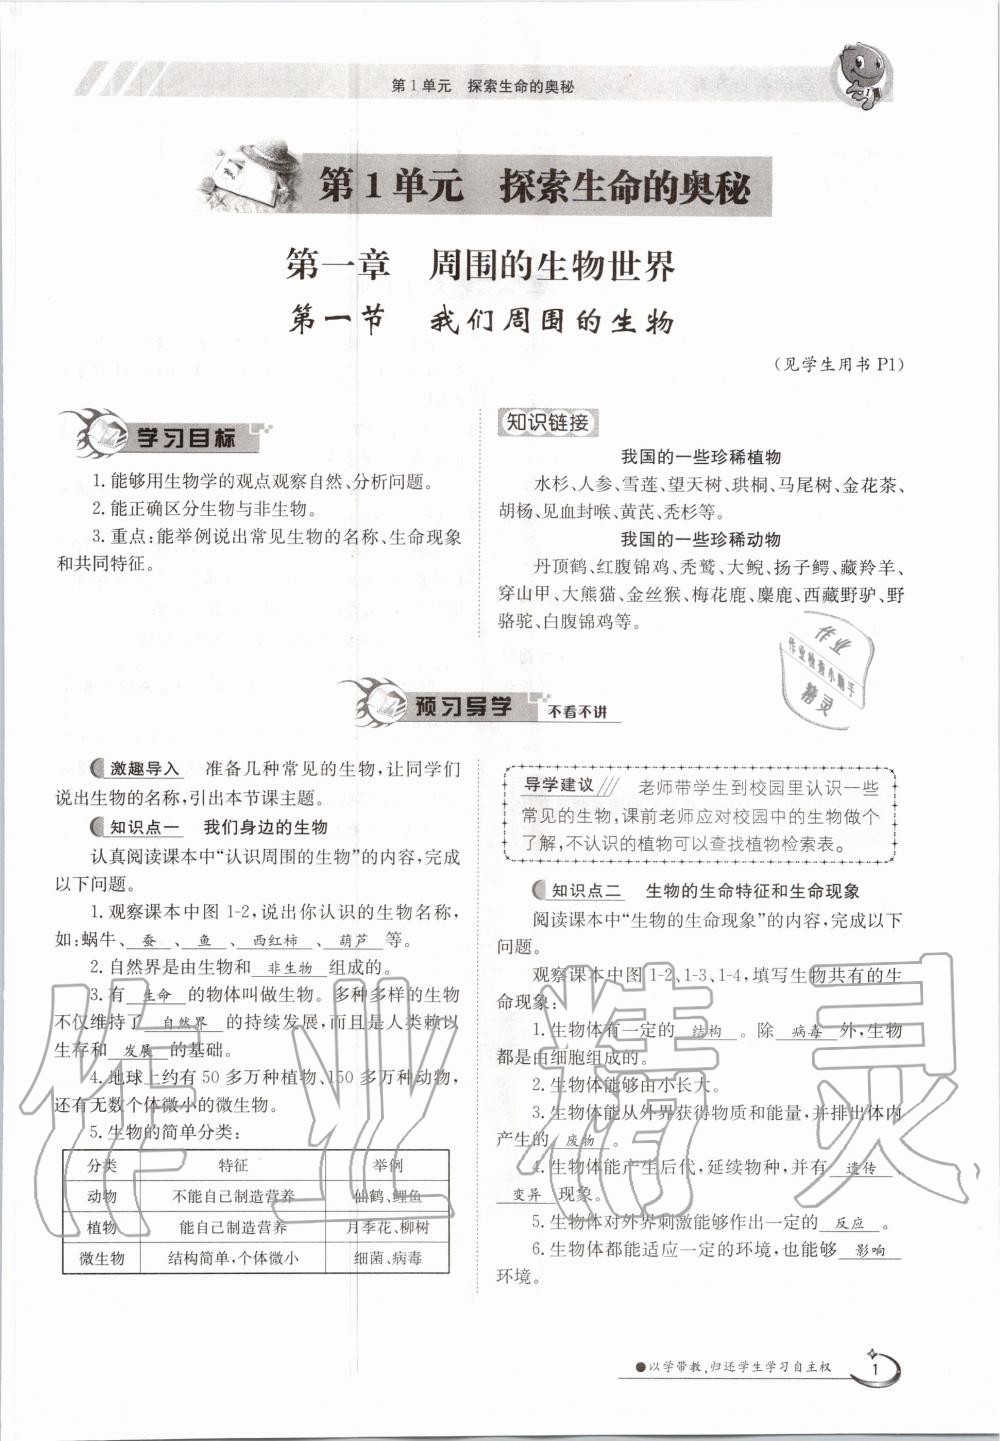 第1单元 探索生命的奥秘
第1单元 探索生命的奥秘
第一章 周围的生物世界
第一节 我们周围的生物
(见学生用书 P1)
学习目标
1.能够用生物学的观点观察自然、分析问题。
2.能正确区分生物与非生物。
3.重点:能举例说出常见生物的名称、生命现象
和共同特征。
知识链接
我国的一些珍稀植物
水杉、人参、雪莲、望天树、珙桐、马尾树、金花茶、
胡杨、见血封喉、黄芪、秃杉等。
我国的一些珍稀动物
丹顶鹤、红腹锦鸡、秃鹫、大鲵、扬子鳄、藏羚羊、
穿山甲、大熊猫、金丝猴、梅花鹿、麋鹿、西藏野驴、野
骆驼、白腹锦鸡等。
作业
作业检查小助手
精灵
预习导学 不看不讲
激趣导入 准备几种常见的生物,让同学们
说出生物的名称,引出本节课主题。
知识点一 我们身边的生物
认真阅读课本中“认识周围的生物”的内容,完成
以下问题。
1.观察课本中图1-2,说出你认识的生物名称,
如:蜗牛、 蚕 、 鱼 、 西红柿 、 葫芦 等。
2.自然界是由生物和 非生物 组成的。
3.有 生命 的物体叫做生物。多种多样的生物
不仅维持了 自然界 的持续发展,而且是人类赖以
生存和 发展 的基础。
4.地球上约有50多万种植物、150多万种动物,
还有无数个体微小的微生物。
5.生物的简单分类:
分类 特征 举例
动物 不能自己制造营养 仙鹤、鲤鱼
植物 能自己制造营养 月季花、柳树
微生物 结构简单,个体微小 细菌、病毒
导学建议 老师带学生到校园里认识一些
常见的生物,课前老师应对校园中的生物做个
了解,不认识的植物可以查找植物检索表。
知识点二 生物的生命特征和生命现象
阅读课本中“生物的生命现象”的内容,完成以下
问题。
观察课本中图1-2、1-3、1-4,填写生物共有的生
命现象:
1.生物体有一定的 结构 。除 病毒 外,生物
都是由细胞组成的。
2.生物体能够由小长大。
3.生物体能从外界获得物质和能量,并排出体内
产生的 废物 。
4.生物体能产生后代,延续物种,并有 遗传 、
变异 现象。
5.生物体对外界刺激能够作出一定的 反应 。
6.生物体都能适应一定的环境,也能够 影响
环境。
作业精灵
●以学带教,归还学生学习自主权
1